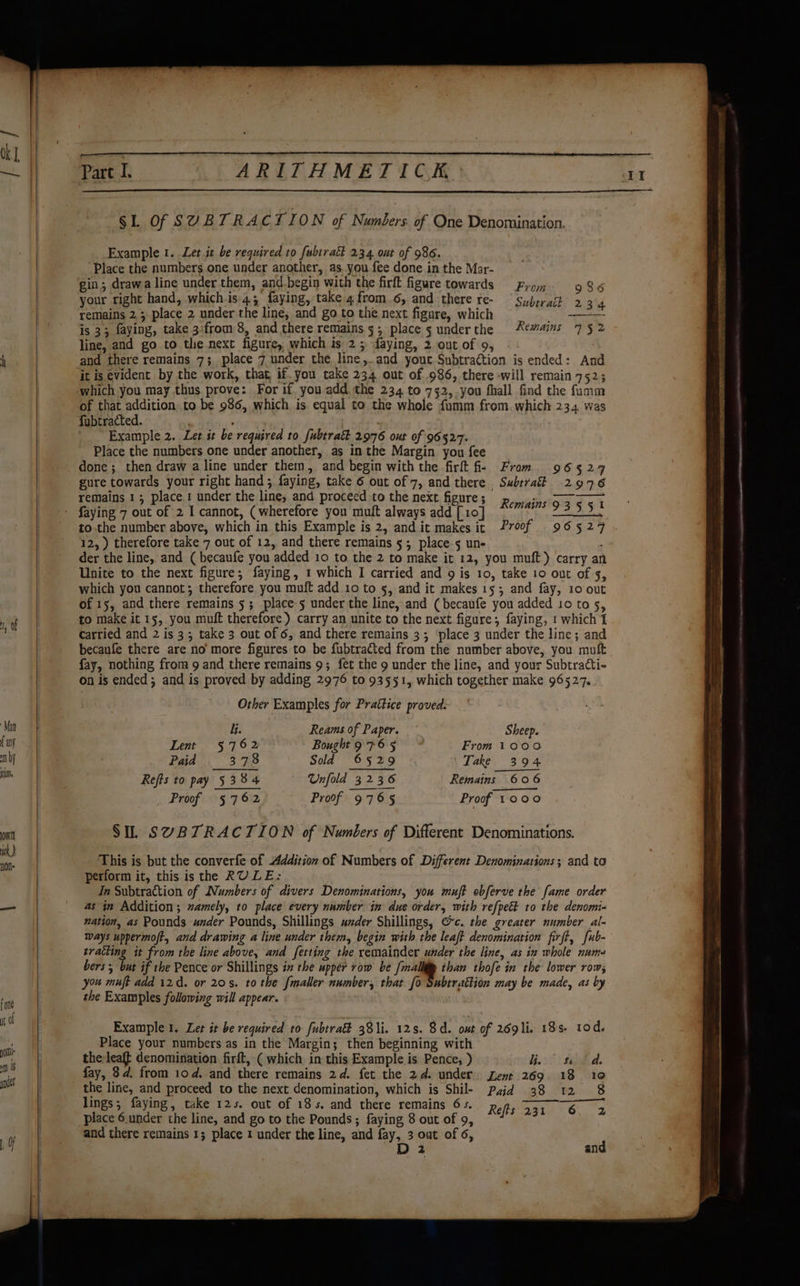 Part I. ARITHMETICK. 11
§I. Of SUBTRACTION of Numbers of One Denomination.
Example 1. Let it be required to ſubtract 234 out of 986.
Place the numbers one under another, as you ſee done in the Mar-
gin; draw a line under them, and begin with the firſt figure towards
your right hand, which is 4; ſaying, take 4 from 6, and there re-
remains 2; place 2 under the line, and go to the next figure, which
is 3; ſaying, take 3 from 8, and there remains 5; place 5 under the
line, and go to the next figure, which is 2; ſaying, 2 out of 9,
From 986
Subtract 234
Remains 752
and there remains 7; place 7 under the line, and your Subtraction is ended: And
it is evident by the work, that if you take 234 out of 986, there will remain 752;
which you may thus prove: For if you add the 234 to 752, you ſhall find the ſumm
of that addition to be 986, which is equal to the whole ſumm from which 234 was
ſubtracted.
Example 2. Let it be required to ſubtract 2976 out of 96527.
Place the numbers one under another, as in the Margin you ſee
done; then draw a line under them, and begin with the firſt fi-
gure towards your right hand; ſaying, take 6 out of 7, and there
remains 1; place 1 under the line, and proceed to the next figure;
ſaying 7 out of 2 I cannot, (wherefore you muſt always add [10]
to the number above, which in this Example is 2, and it makes it
12,) therefore take 7 out of 12, and there remains 5; place 5 un-
From 96527
Subtract 2976
Remains 93551
Proof 96527
der the line, and (becauſe you added 10 to the 2 to make it 12, you muſt) carry an
Unite to the next figure; ſaying, 1 which I carried and 9 is 10, take 10 out of 5,
which you cannot; therefore you muſt add 10 to 5, and it makes 15; and ſay, 10 out
of 15, and there remains 5; place 5 under the line, and (becauſe you added 10 to 5,
to make it 15, you muſt therefore) carry an unite to the next figure; ſaying, 1 which I
carried and 2 is 3; take 3 out of 6, and there remains 3; place 3 under the line; and
becauſe there are no more figures to be ſubtracted from the number above, you muſt
ſay, nothing from 9 and there remains 9; ſet the 9 under the line, and your Subtracti-
on is ended; and is proved by adding 2976 to 93551, which together make 96527.
Other Examples for Practice proved.
li. Reams of Paper. Sheep.
Lent 5762 Bought 9765 From 1000
Paid 378 Sold 6529 Take 394
Reſts to pay 5384 Unſold 3236 Remains 606
Proof 5762 Proof 9765 Proof 1000
§II. SUBTRACTION of Numbers of Different Denominations.
This is but the converſe of Addition of Numbers of Different Denominations; and to
perform it, this is the RULE:
In Subtraction of Numbers of divers Denominations, you muſt obſerve the ſame order
as in Addition; namely, to place every number in due order, with reſpect to the denomi-
nation, as Pounds under Pounds, Shillings under Shillings, &c. the greater number al-
ways uppermoſt, and drawing a line under them, begin with the leaſt denomination firſt, ſub-
tracting it from the line above, and ſetting the remainder under the line, as in whole num-
bers; but if the Pence or Shillings in the upper row be ſmaller than thoſe in the lower row,
you muſt add 12d. or 20s. to the ſmaller number, that ſo Subtraction may be made, as by
the Examples following will appear.
Example 1. Let it be required to ſubtract 38li. 12s. 8d. out of 269li. 18s. 10d.
Place your numbers as in the Margin; then beginning with
the leaſt denomination firſt, (which in this Example is Pence,)
ſay, 8d. from 10d. and there remains 2d. ſet the 2d. under
the line, and proceed to the next denomination, which is Shil-
lings; ſaying, take 12s. out of 18s. and there remains 6s.
place 6 under the line, and go to the Pounds; ſaying 8 out of 9,
and there remains 1; place 1 under the line, and ſay, 3 out of 6,
li. s. d.
Lent 269 18 10
Paid 38 12 8
Reſts 231 6 2
D 2 and